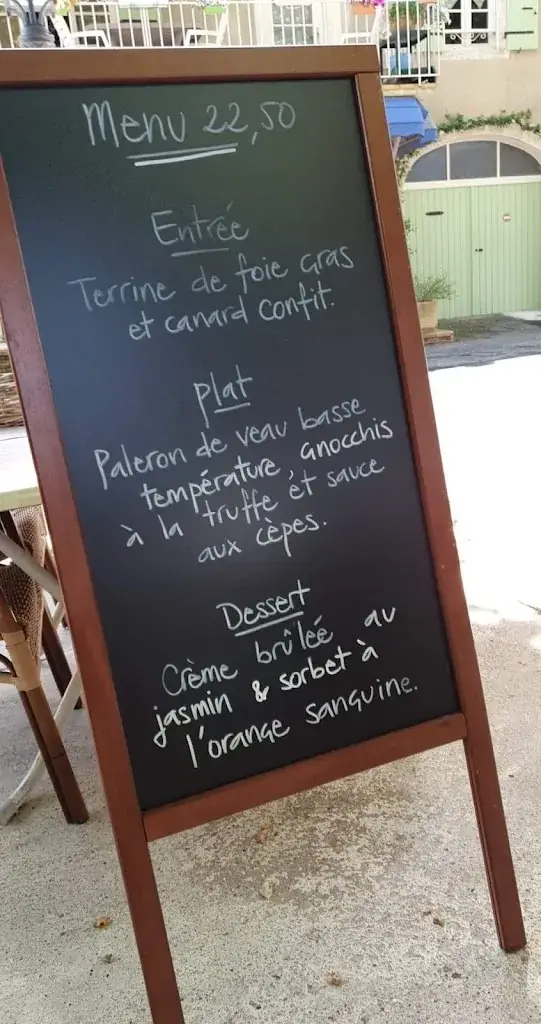 Menu 22,50
Entrée
Terrine de foie gras
et canard confit.
plat
Paleron de veau basse
température, gnocchis
à la truffe et sauce
aux cèpes.
Dessert
Crème brûleé au
jasmin & sorbet à
l'orange sanguine.